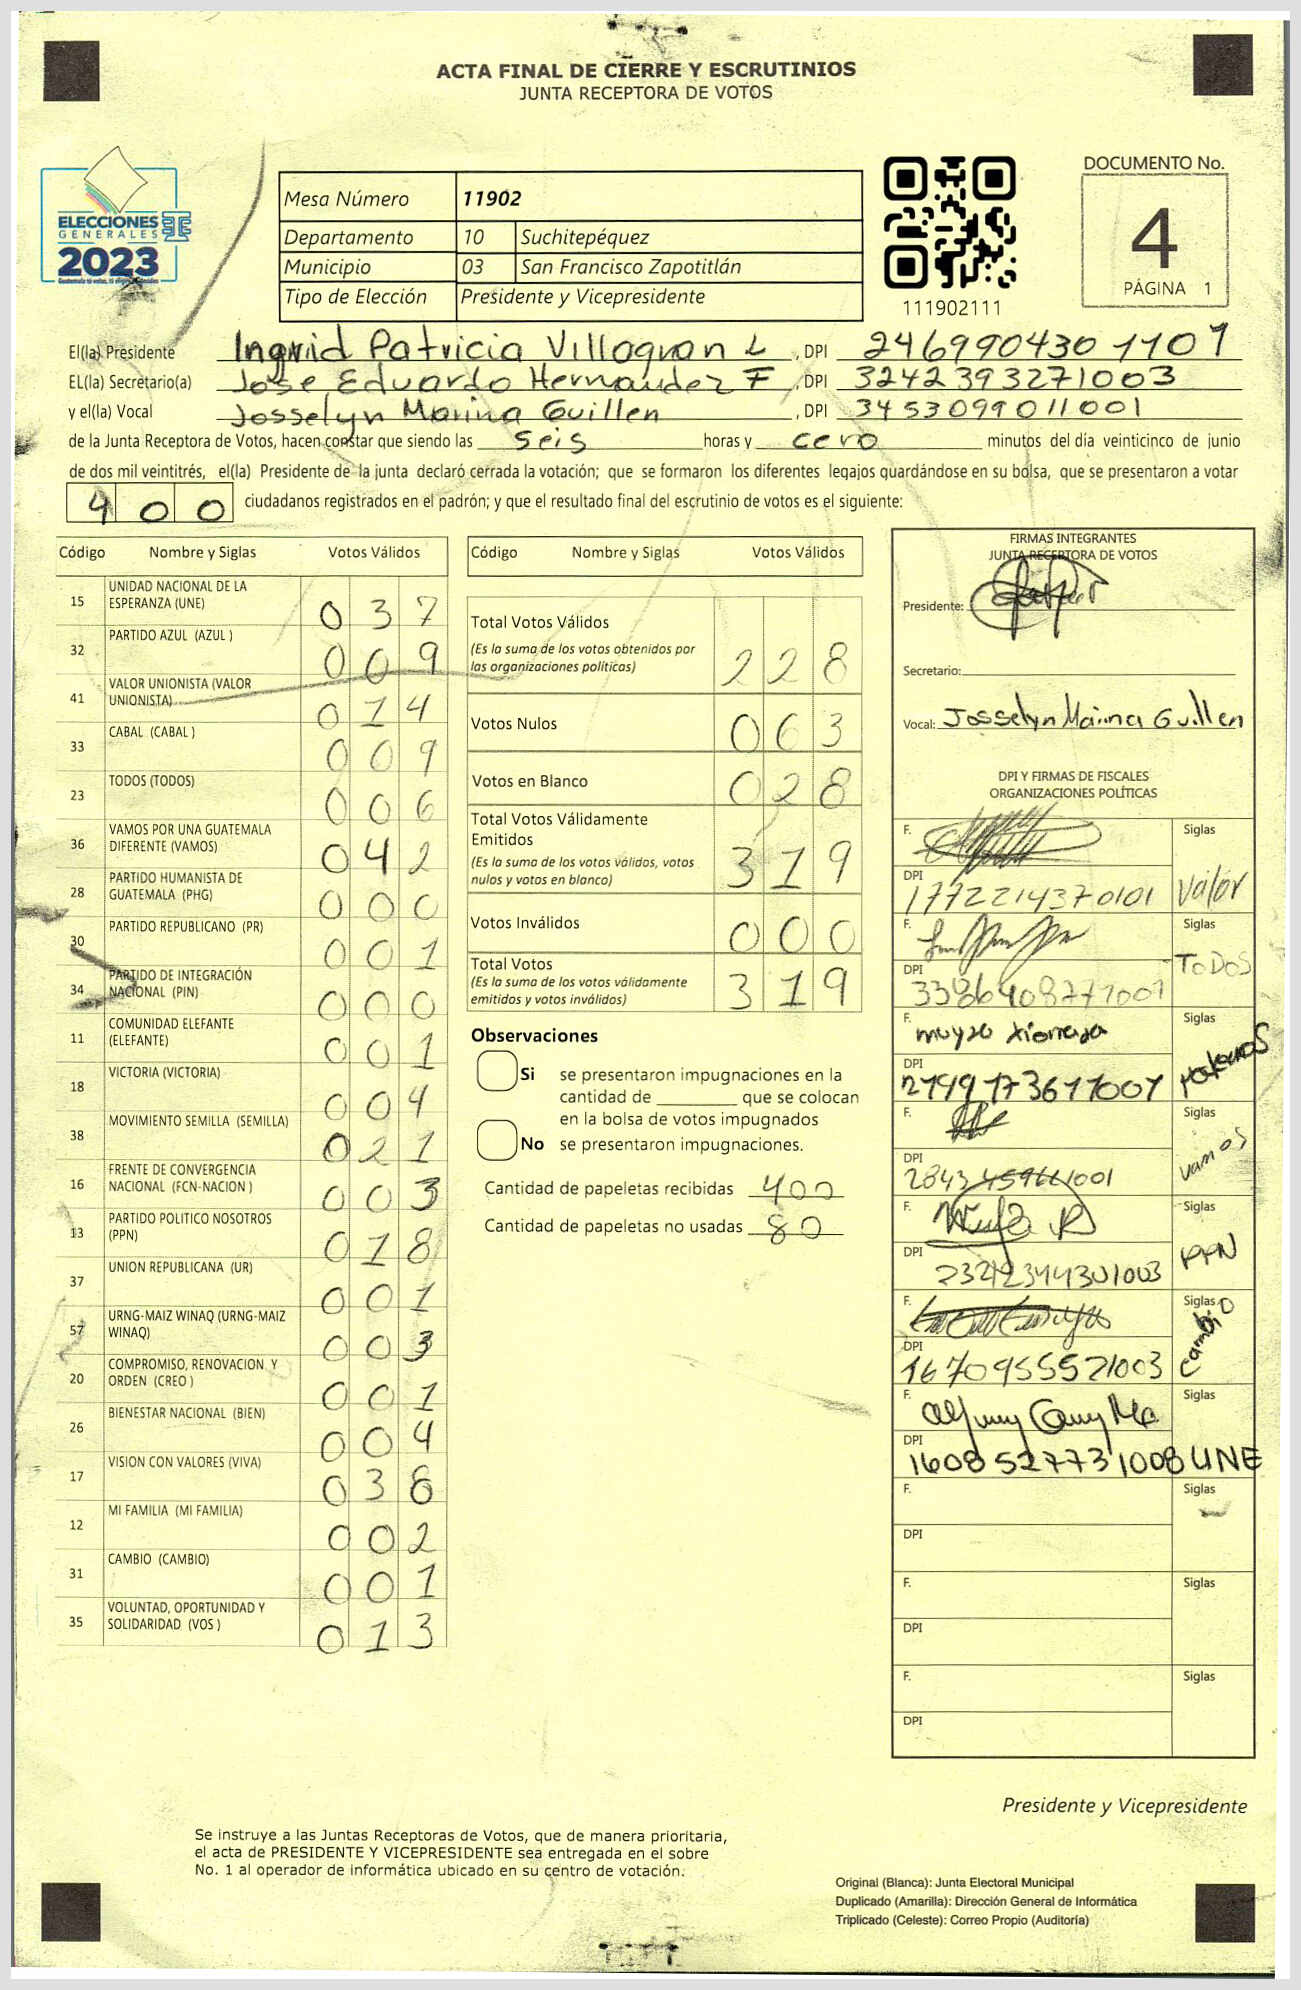 ACTA FINAL DE CIERRE Y ESCRUTINIOS
JUNTA RECEPTORA DE VOTOS
ELECCIONES
GENERALES
2023
Mesa Número 11902
Departamento 10 Suchitepéquez
Municipio 03 San Francisco Zapotitlán
Tipo de Elección Presidente y Vicepresidente
111902111
DOCUMENTO No.
4
PÁGINA 1
El(la) Presidente Ingrid Patricia Villagran L, DPI 2469904301101
EL(la) Secretario(a) Jose Eduardo Hernandez F, DPI 3242393271003
y el(la) Vocal Josselyn Marina Guillen, DPI 3453099011001
de la Junta Receptora de Votos, hacen constar que siendo las seis horas y cero minutos del día veinticinco de junio
de dos mil veintitrés, el(la) Presidente de la junta declaró cerrada la votación; que se formaron los diferentes legajos guardándose en su bolsa, que se presentaron a votar
400 ciudadanos registrados en el padrón; y que el resultado final del escrutinio de votos es el siguiente:
Código Nombre y Siglas Votos Válidos
15 UNIDAD NACIONAL DE LA ESPERANZA (UNE) 037
32 PARTIDO AZUL (AZUL ) 009
41 VALOR UNIONISTA (VALOR UNIONISTA) 014
33 CABAL (CABAL ) 009
23 TODOS (TODOS) 006
36 VAMOS POR UNA GUATEMALA DIFERENTE (VAMOS) 042
28 PARTIDO HUMANISTA DE GUATEMALA (PHG) 000
30 PARTIDO REPUBLICANO (PR) 001
34 PARTIDO DE INTEGRACIÓN NACIONAL (PIN) 000
11 COMUNIDAD ELEFANTE (ELEFANTE) 001
18 VICTORIA (VICTORIA) 004
38 MOVIMIENTO SEMILLA (SEMILLA) 021
16 FRENTE DE CONVERGENCIA NACIONAL (FCN-NACION ) 003
13 PARTIDO POLITICO NOSOTROS (PPN) 018
37 UNION REPUBLICANA (UR) 001
57 URNG-MAIZ WINAQ (URNG-MAIZ WINAQ) 003
20 COMPROMISO, RENOVACION Y ORDEN (CREO ) 001
26 BIENESTAR NACIONAL (BIEN) 004
17 VISION CON VALORES (VIVA) 038
12 MI FAMILIA (MI FAMILIA) 002
31 CAMBIO (CAMBIO) 001
35 VOLUNTAD, OPORTUNIDAD Y SOLIDARIDAD (VOS ) 013
Código Nombre y Siglas Votos Válidos
Total Votos Válidos 228
(Es la suma de los votos obtenidos por
las organizaciones políticas)
Votos Nulos 063
Votos en Blanco 028
Total Votos Válidamente
Emitidos 319
(Es la suma de los votos válidos, votos
nulos y votos en blanco)
Votos Inválidos 000
Total Votos 319
(Es la suma de los votos válidamente
emitidos y votos inválidos)
Observaciones
Si se presentaron impugnaciones en la
cantidad de ________ que se colocan
en la bolsa de votos impugnados
No se presentaron impugnaciones.
Cantidad de papeletas recibidas 400
Cantidad de papeletas no usadas 80
FIRMAS INTEGRANTES
JUNTA RECEPTORA DE VOTOS
Presidente:
Secretario:
Vocal: Josselyn Marina Guillen
DPI Y FIRMAS DE FISCALES
ORGANIZACIONES POLÍTICAS
F. Siglas
DPI 1772214370101 Valor
F. Siglas
DPI 3386408771001 TODOS
F. Siglas
DPI
F. Siglas
DPI vamos
F. Siglas
DPI PPN
F. Siglas
DPI 1670955521003 Cambio
F. Siglas
DPI 1608527731008 UNE
F. Siglas
DPI
F. Siglas
DPI
F. Siglas
DPI
Presidente y Vicepresidente
Se instruye a las Juntas Receptoras de Votos, que de manera prioritaria,
el acta de PRESIDENTE Y VICEPRESIDENTE sea entregada en el sobre
No. 1 al operador de informática ubicado en su centro de votación.
Original (Blanca): Junta Electoral Municipal
Duplicado (Amarilla): Dirección General de Informática
Triplicado (Celeste): Correo Propio (Auditoría)